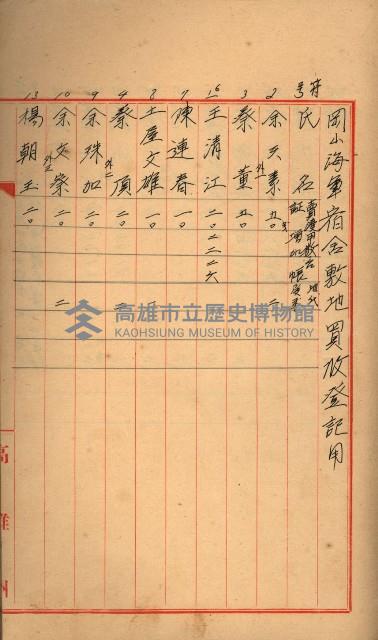 岡山海軍宿舍敷地買收登記用
符号 氏名 賣渡 証 增 帳
2 余天素 五〇 二
3 蔡董 外一 五〇
16 王清江 二〇 二 二 二六
7 陳連春 一〇
8 土屋文雄 一〇
4 蔡頂 外二 二〇 二
9 余殊加 二〇
10 余文榮 外三 二〇 二
13 楊朝玉 二〇
高雄州
高雄市立歷史博物館
KAOHSIUNG MUSEUM OF HISTORY